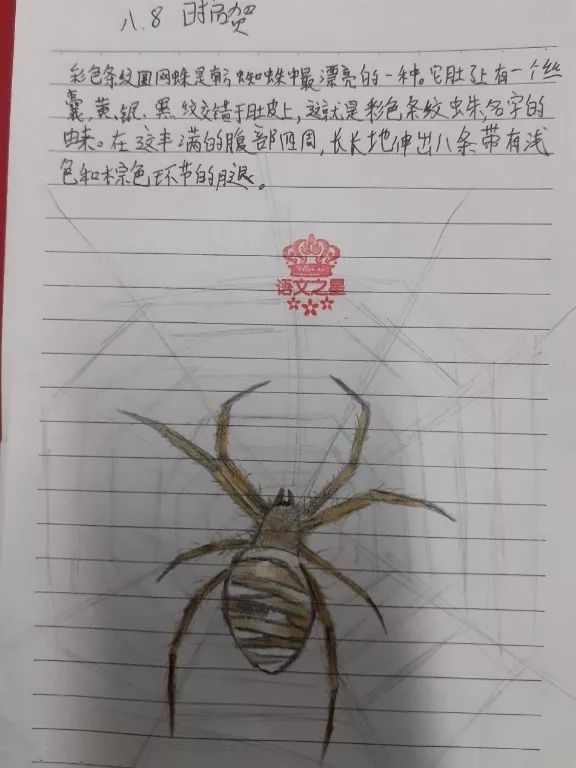 八.8 时历贺
彩色条纹圆网蛛是蜘蛛中最漂亮的一种。它肚子上有一个丝
囊,黄、银、黑纹交错于肚皮上,这就是彩色条纹蛛,名字的
由来。在这丰满的腹部四周,长长地伸出八条带有浅
色和棕色环节的腿。
语文之星